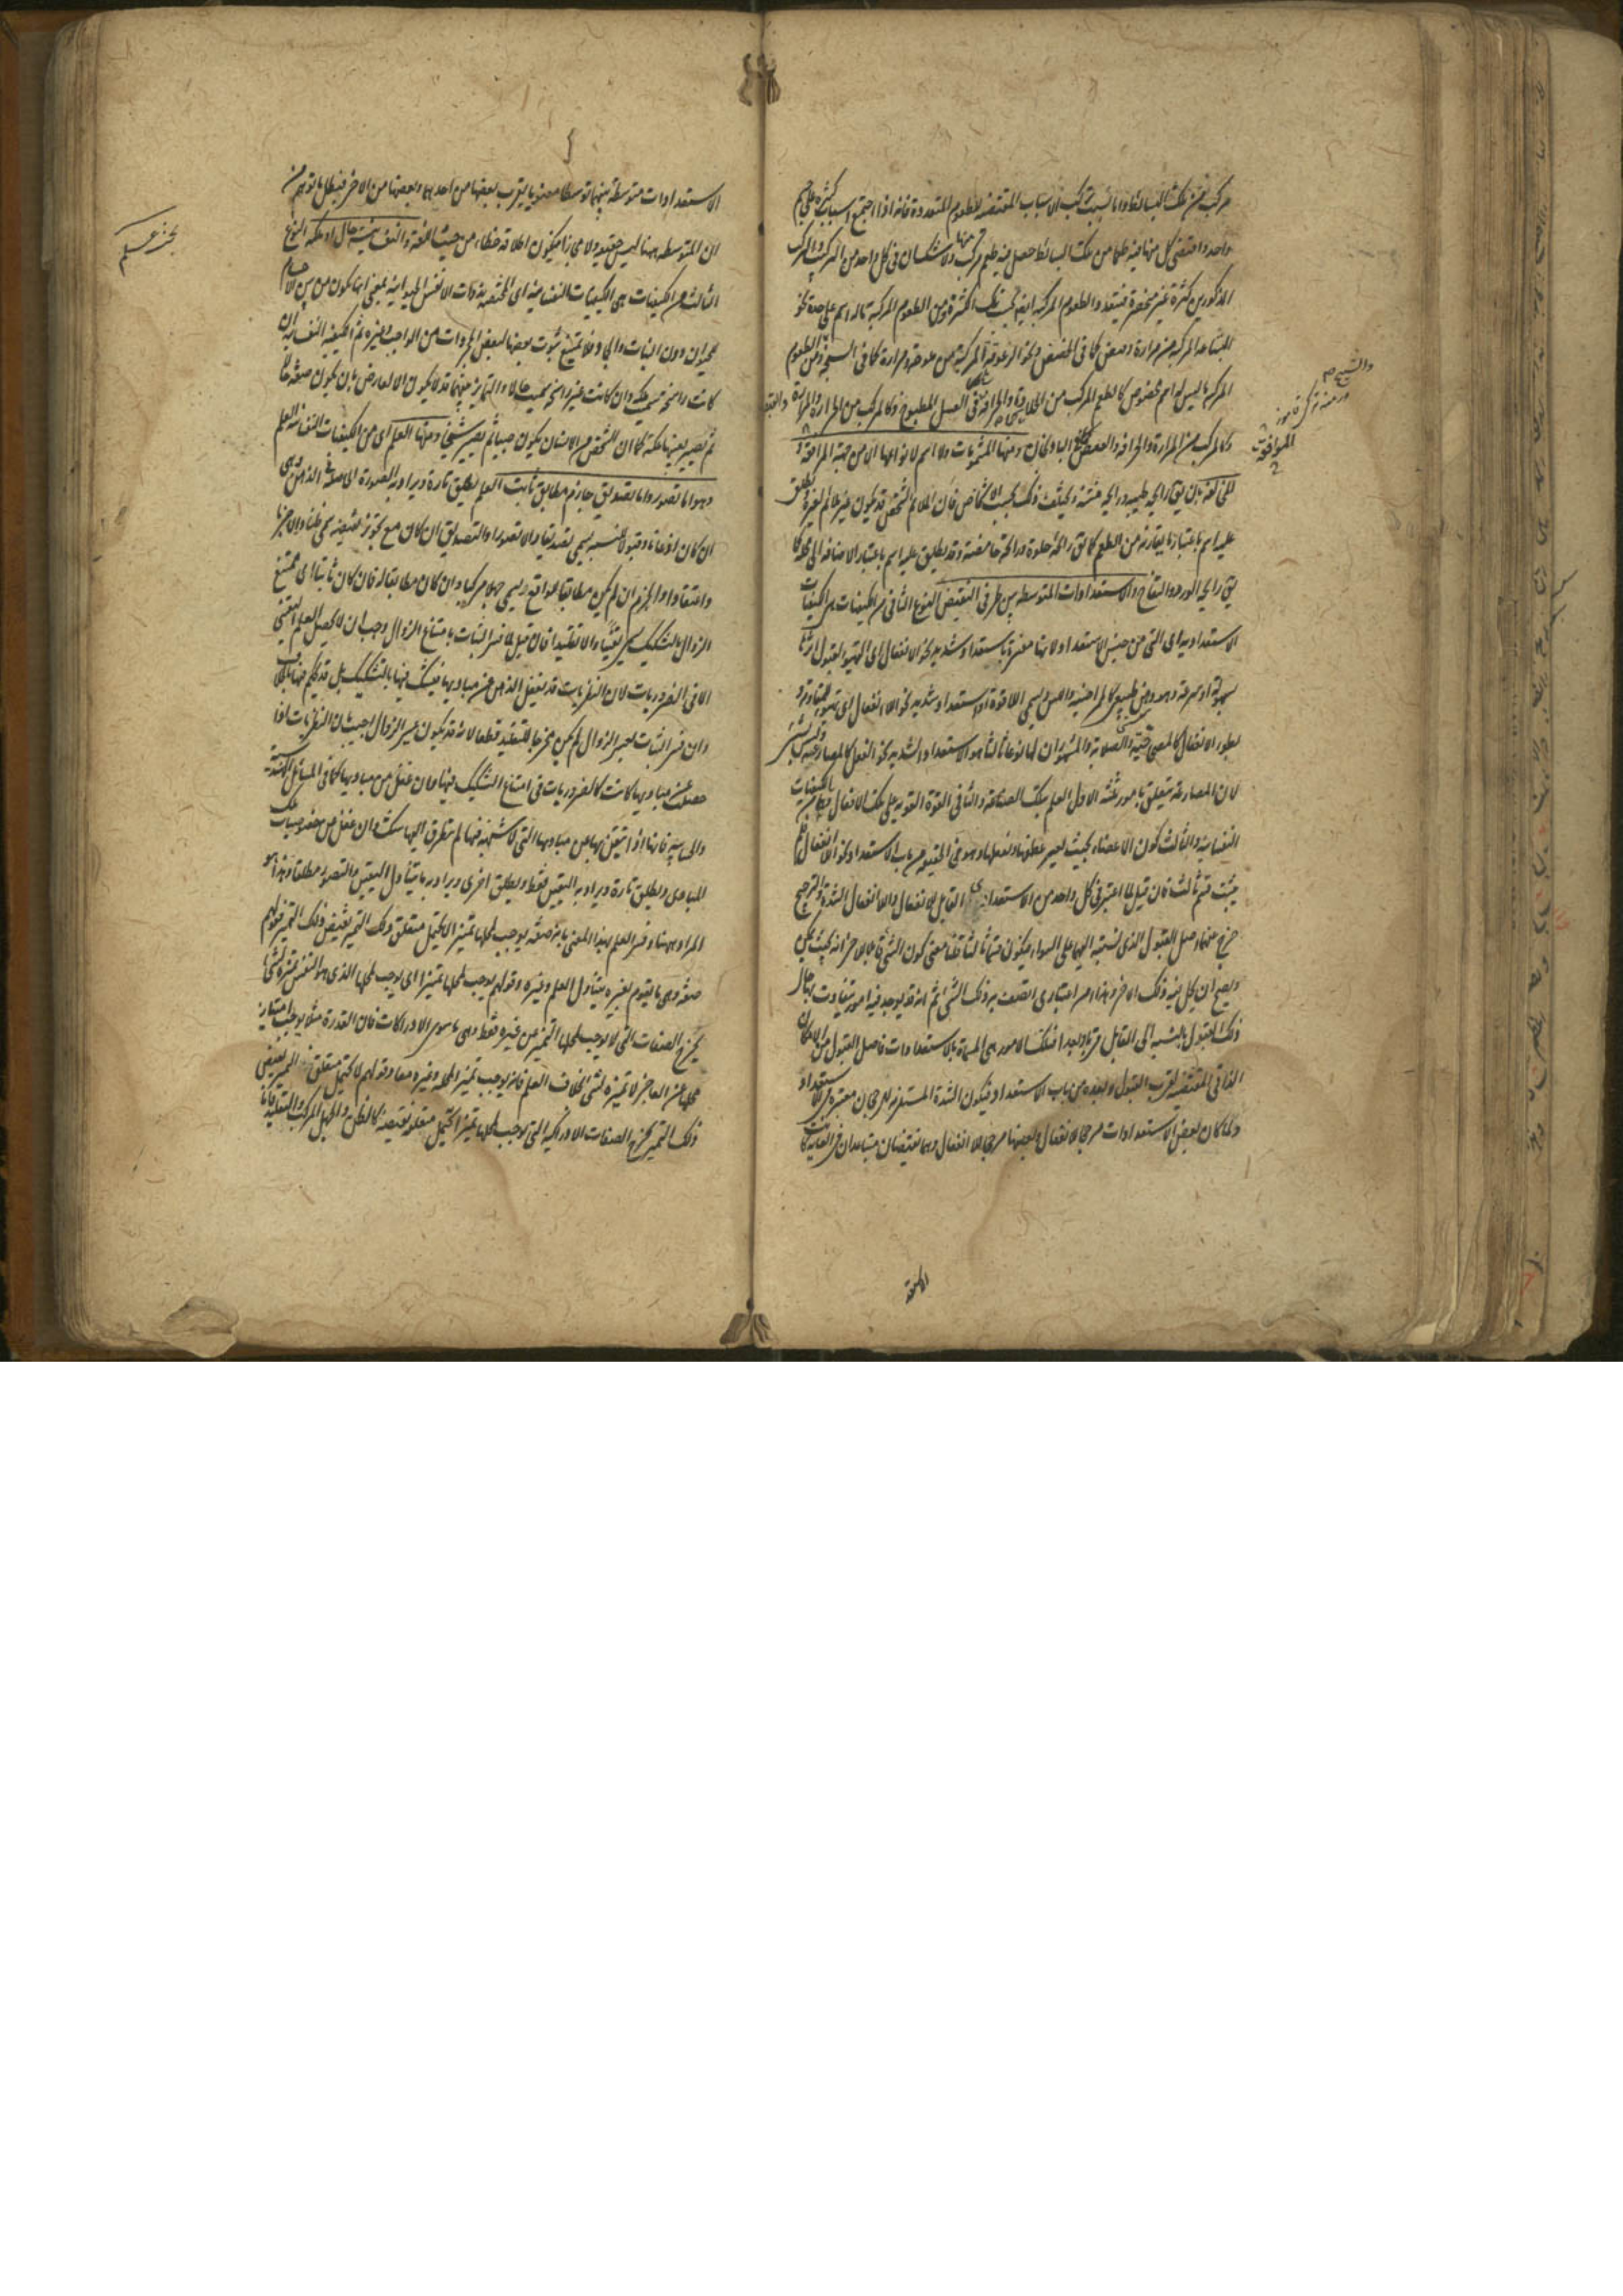 مركب من تلك البسائط واما بسبب تركب الاسباب المقتضية للطعوم المتعددة فانه اذا اجتمع اسباب كثيرة على جسم
واحد واقتضى كل منها فيه طعما من تلك البسائط حصل فيه طعم مركب منها ولا شك ان في كل واحد من التركيب والمركب
المذكورين كثرة غير منحصرة فيتعدد الطعوم المركبة ايضا بحسب تلك الكثرة ومن الطعوم المركبة ما له اسم على حدة نحو
البشاعة المركبة من مرارة وقبض كما في الحضض ونحو الزعوقة المركبة من ملوحة ومرارة كما في السبخة ومن الطعوم
المركبة ما ليس له اسم مخصوص كالطعم المركب من الحلاوة والحرافة في العسل المطبوخ وكالمركب من المرارة والتفاهة
وكالمركب من المرارة والحرافة والقبض في الباذنجان ومنها المشمومات ولا اسم لانواعها الا من جهة الموافقة و
المخالفة بان يقال رائحة طيبة ورائحة منتنة ويختلف ذلك بحسب الاشخاص فان الملائم لشخص قد يكون غير ملائم لغيره وقد يطلق
عليه اسم باعتبار ما يقارنه من الطعم كما يقال رائحة حلوة ورائحة حامضة وقد يطلق عليه اسم باعتبار الاضافة الى محله كما
يقال رائحة الورد والتفاح والاستعدادات المتوسطة بين طرفي النقيض النوع الثاني من الكيفيات هي الكيفيات
الاستعدادية اي التي من جنس الاستعداد لانها مفسرة باستعداد شديد نحو الانفعال اي التهيؤ لقبول اثر ما
بسهولة او سرعة وهو وهن طبيعي كالممراضية واللين ويسمى اللاقوة او استعداد شديد نحو اللا انفعال اي تهيؤ للمقاومة و
بطوء الانفعال كالمصحاحية والصلابة والمشهور ان لها نوعا ثالثا هو الاستعداد الشديد نحو الفعل كالمصارعة وليس بشيء
لان المصارعة يتعلق بامور ثلثة الاول العلم بتلك الصناعة والثاني القوة القوية على تلك الافعال وهما من الكيفيات
النفسانية والثالث كون الاعضاء بحيث يعسر عطفها ونقلها وهو في الحقيقة من باب الاستعداد نحو اللا انفعال فلم
يثبت قسم ثالث فان قيل لما اعتبر في كل واحد من الاستعدادين القابل للانفعال واللا انفعال الشدة والترجيح
خرج عنهما اصل القبول الذي نسبته اليهما على السواء فيكون قسما ثالثا قلنا معنى كون الشيء قابلا لاخر انه بحيث يمكن
ويصح ان يحل فيه ذلك الاخر وهذا امر اعتباري اتصف به ذلك الشيء ثم انه قد يوجد فيه امور يتفاوت بها حال
ذلك القبول بالنسبة الى القابل قربا وبعدا فتلك الامور هي المسماة بالاستعدادات فاصل القبول من الامكان
الذاتي المقتضية لقرب القبول وبعده من باب الاستعداد فيكون الشدة المستلزمة للرجحان معتبرة في الاستعداد
ولما كان بعض الاستعدادات مرجحا للانفعال وبعضها مرجحا للا انفعال وهما نقيضان متباعدان في الغاية كانت
الاستعدادات متوسطة بينهما توسطا معنويا يقرب بعضها من احدهما وبعضها من الاخر فبطل ما توهم من
ان المتوسطة ههنا ليس بحقيقة ولا مجازا فيكون اطلاقه خطاء من حيث اللغة والنفسانية حال او ملكة النوع
الثالث من الكيفيات هي الكيفيات النفسانية اي المختصة بذوات الانفس الحيوانية بمعنى انها تكون من بين الاجسام
للحيوان دون النبات والجماد فلا يمتنع ثبوت بعضها لبعض المجردات من الواجب وغيره ثم الكيفية النفسانية ان
كانت راسخة سميت ملكة وان كانت غير راسخة سميت حالا والتمايز بينهما قد لا يكون الا لعارض بان يكون صفة حالا
ثم تصير بعينها ملكة كما ان الشخص من الانسان يكون صبيا ثم يصير شيخا ومنها العلم اي من الكيفيات النفسانية العلم
وهو اما تصور واما تصديق جازم مطابق ثابت العلم يطلق تارة ويراد به الصورة الحاصلة في الذهن وهي
ان كان اذعانا وقبولا للنسبة يسمى تصديقا والا تصورا والتصديق ان كان مع تجويز نقيضه سمي ظنا والا جزما
واعتقادا والجزم ان لم يكن مطابقا للواقع يسمى جهلا مركبا وان كان مطابقا له فان كان ثابتا اي ممتنع
الزوال بالتشكيك سمي يقينا والا تقليدا فان قيل لما فسر الثبات بامتناع الزوال وجب ان لا يحصل العلم اليقيني
الا في الضروريات لان النظريات قد يغفل الذهن عن مباديها فيشك فيها بالتشكيك بل قد يحكم فيها بالخلاف
وان فسر الثبات بعسر الزوال لم يكن مخرجا للتقليد قطعا لانه قد يكون عسير الزوال اجيب بان النظريات اذا
حصلت عن مباديها كانت كالضروريات في امتناع التشكيك فيها وان غفل عن مباديها كما في المسائل الهندسية
والحسابية فانها اذا تيقن بها من مباديها التي لا شبهة فيها لم يتطرق اليها شك وان غفل عن خصوصيات تلك
المبادي ويطلق تارة ويراد به اليقين فقط ويطلق اخرى ويراد به ما يتناول اليقين والتصور مطلقا وهذا هو
المراد ههنا وفسر العلم بهذا المعنى بانه صفة يوجب لمحلها تميزا لا يحتمل متعلق ذلك التميز نقيض ذلك التميز فقولهم
صفة وهي ما يقوم بغيره يتناول العلم وغيره وقولهم يوجب لمحلها تميزا اي يوجب لمحلها الذي هو النفس تميزه لشيء
يخرج الصفات التي لا يوجب لمحلها التميز من غيره فقط وهي ما سوى الادراكات فان القدرة مثلا يوجب امتياز
محلها عن العاجز لا تميزه لشيء بخلاف العلم فانه يوجب تميز المحله وغيره معا وقولهم لا يحتمل متعلق التميز نقيض
ذلك التميز يخرج الصفات الادراكية التي توجب لمحلها تميزا يحتمل متعلقه نقيضه كالظن والجهل المركب والتقليد فانا